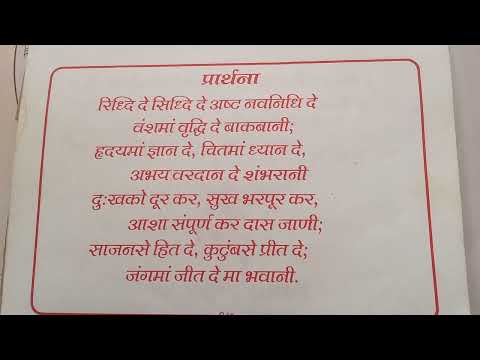 प्रार्थना
रिध्दि दे सिध्दि दे अष्ट नवनिधि दे
वंशमां वृद्धि दे बाकबानी;
हृदयमां ज्ञान दे, चितमां ध्यान दे,
अभय वरदान दे शंभरानी
दुःखको दूर कर, सुख भरपूर कर,
आशा संपूर्ण कर दास जाणी;
साजनसे हित दे, कुटुंबसे प्रीत दे;
जंगमां जीत दे मा भवानी.